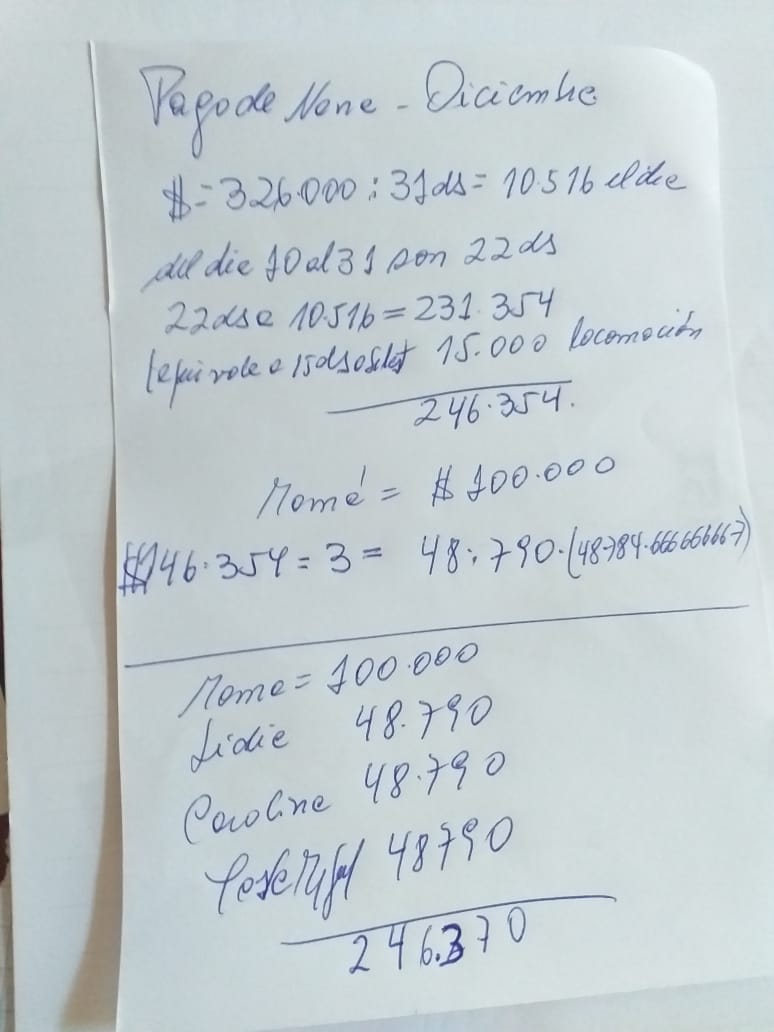 Pago de Nana - Diciembre
$= 326.000 : 31 ds = 10.516 el dia
del dia 10 al 31 son 22 ds
22 ds a 10.516 = 231.354
15.000 locomoción
246.354.
Mamá = $ 100.000
146.354 = 3 = 48.790.(48.784.666666667)
Mama = 100.000
Lidia 48.790
Carolina 48.790
48790
246.370